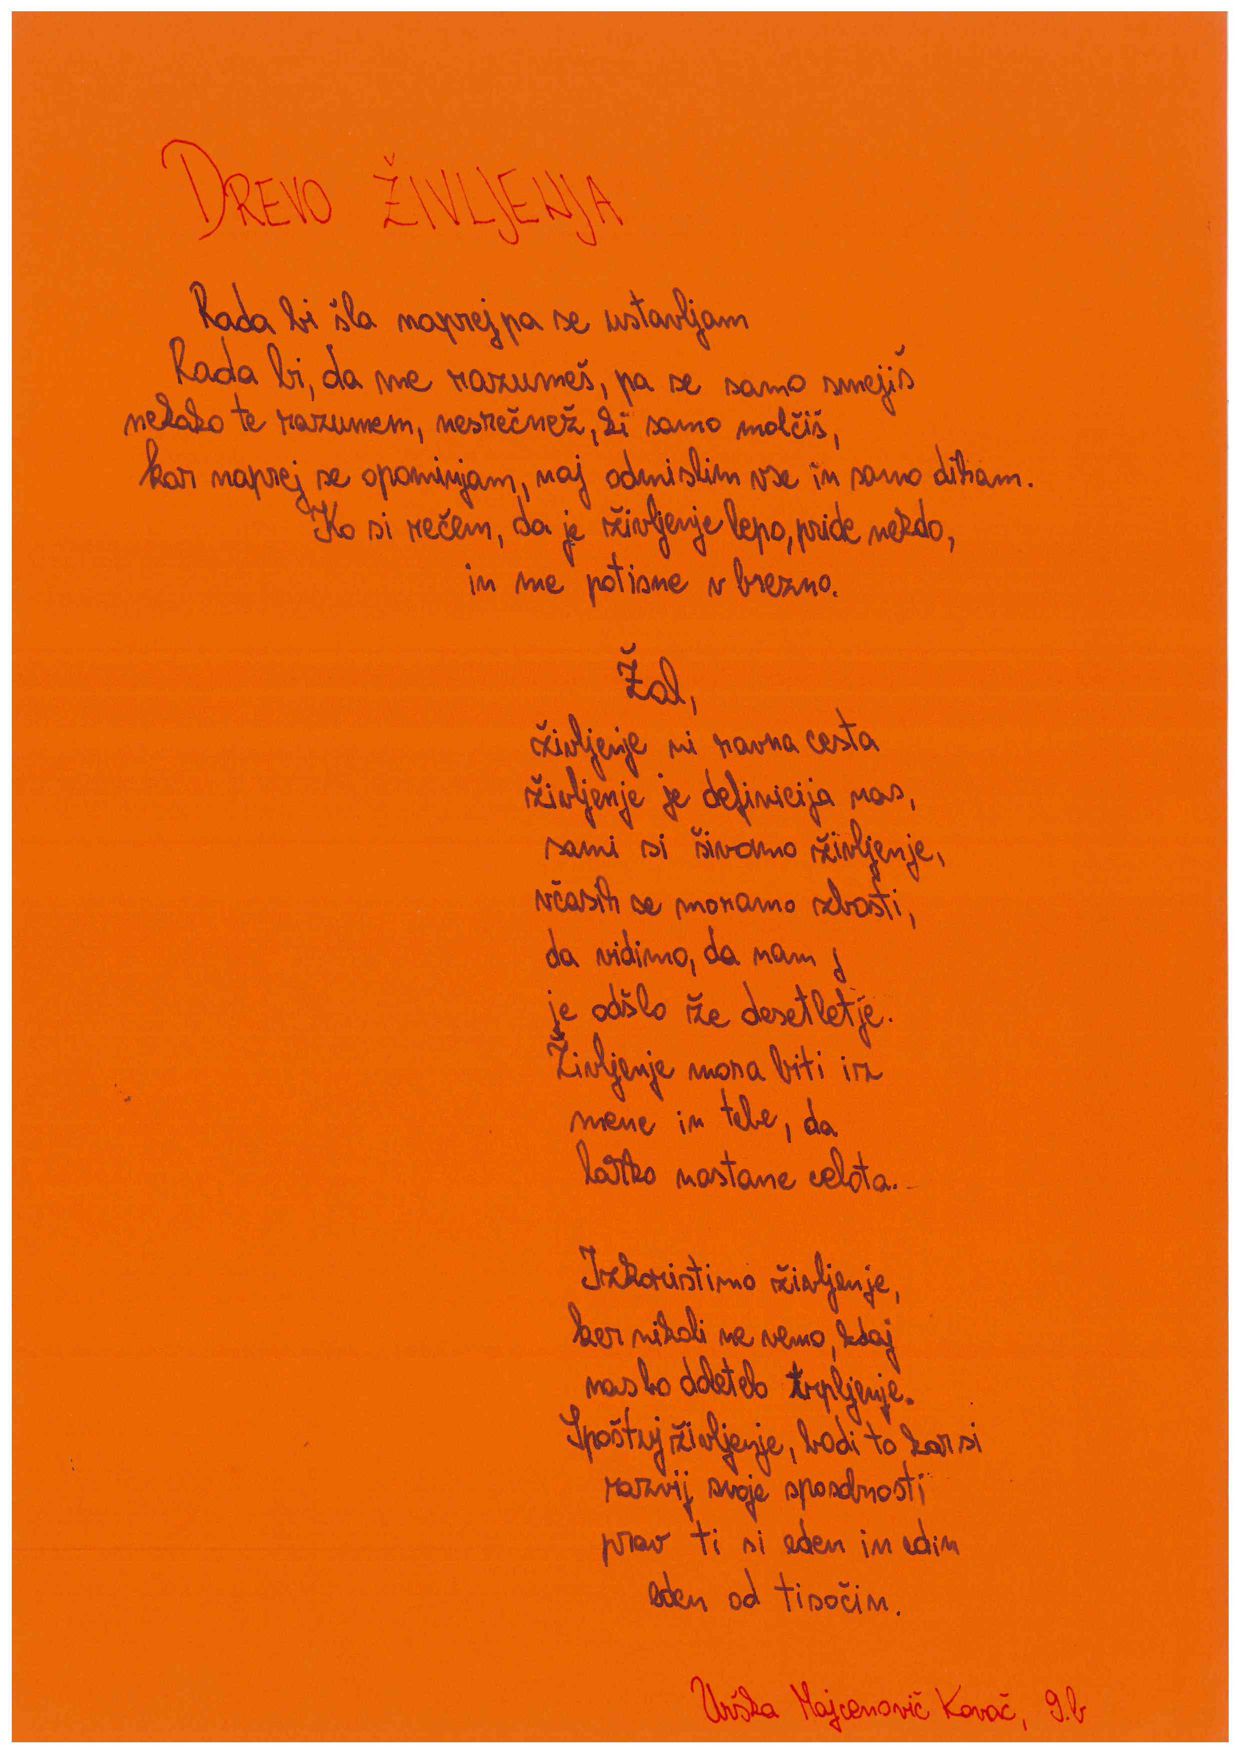 DREVO ŽIVLJENJA
Rada bi šla naprej pa se ustavljam
Rada bi, da me razumeš, pa se samo smejiš
nekako te razumem, nesrečnež, ki samo molčiš,
kar naprej se opominjam, naj odmislim vse in samo diham.
Ko si rečem, da je življenje lepo, pride nekdo,
in me potisne v brezno.
Žal,
življenje ni ravna cesta
življenje je definicija nas,
sami si šivamo življenje,
včasih se moramo zbosti,
da vidimo, da nam
je odšlo že desetletje.
Življenje mora biti iz
mene in tebe, da
lahko nastane celota.
Izkoristimo življenje,
ker nikoli ne vemo, kdaj
nas bo doletelo trpljenje.
Spoštuj življenje, bodi to kar si
razvij svoje sposobnosti
prav ti si eden in edin
eden od tisočin.
Urška Majcenovič Kovač, 9.b